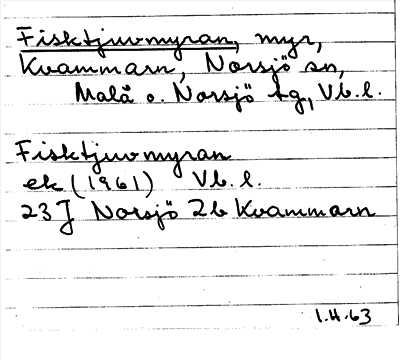 Fisktjuvmyran, myr,
Kvammarn, Norsjö sn,
Malå o. Norsjö tg, Vb.l.
Fisktjuvmyran
ek (1961) Vb.l.
23J Norsjö 2b Kvammarn
1.H.63